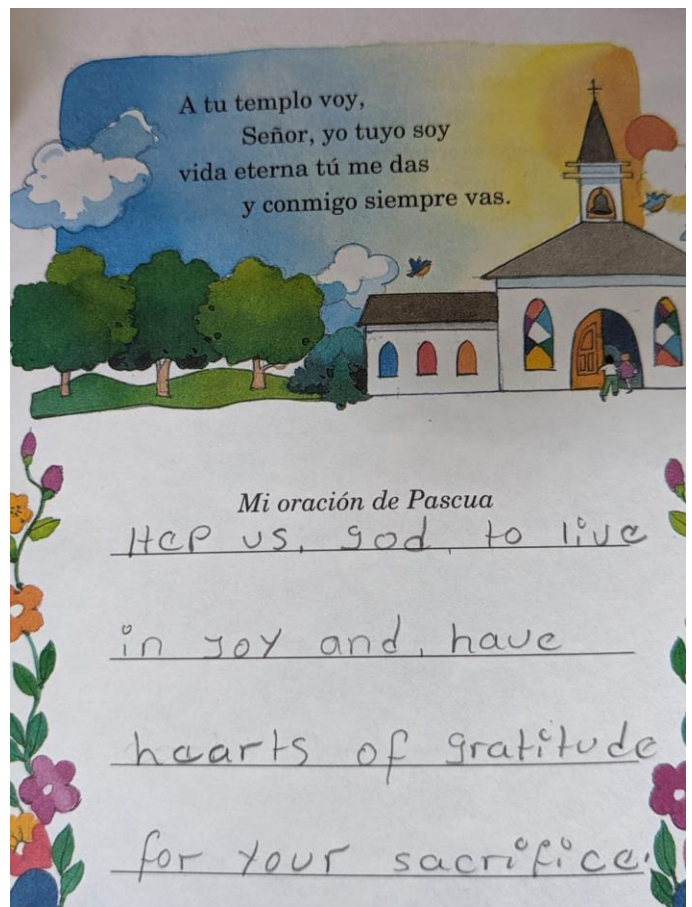 A tu templo voy,
Señor, yo tuyo soy
vida eterna tú me das
y conmigo siempre vas.
Mi oración de Pascua
Hep us, god, to live
in joy and, have
hearts of gratitude
for your sacrifice.